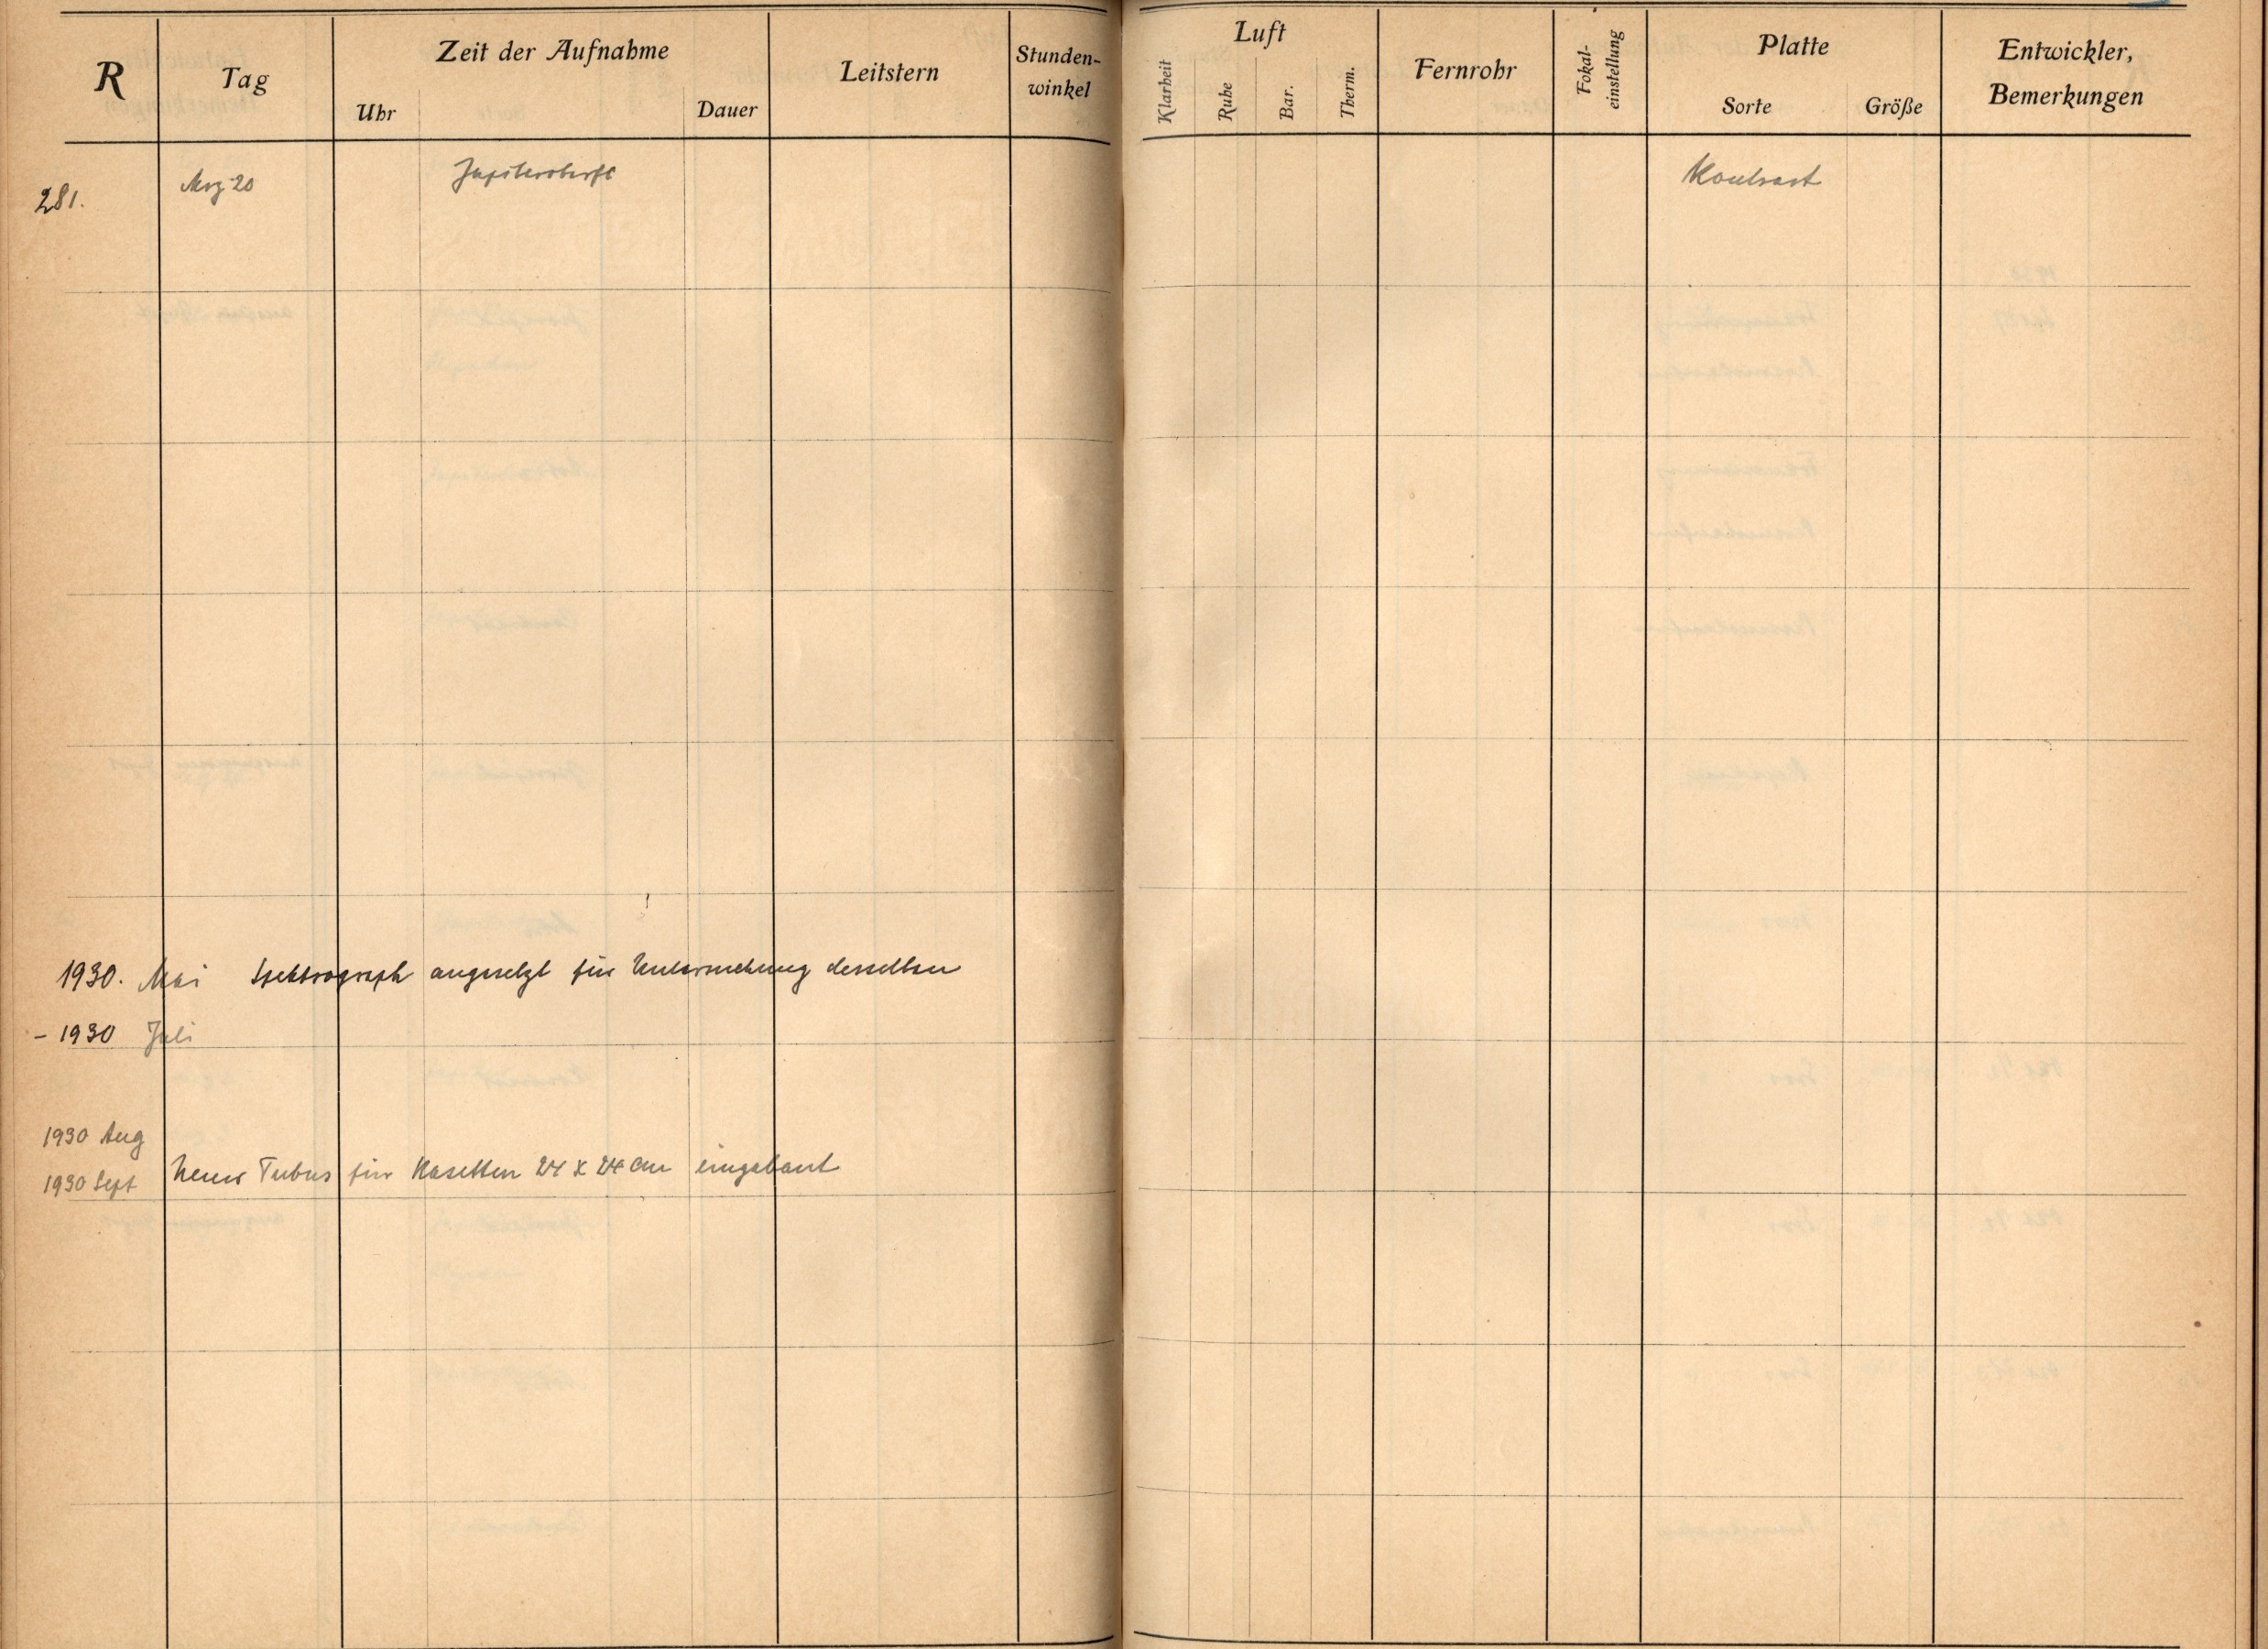 R Tag Zeit der Aufnahme Uhr Dauer Leitstern Stunden-winkel Luft Klarheit Ruhe Bar. Therm. Fernrohr Fokal-einstellung Platte Sorte Größe Entwickler, Bemerkungen
281. Mrz 20 Kontrast
1930. Mai Spektrograph angesetzt für Untersuchung desselben
- 1930 Juli
1930 Aug
1930 Sept Neuer Tubus für Kasetten 24 x 24 cm eingebaut